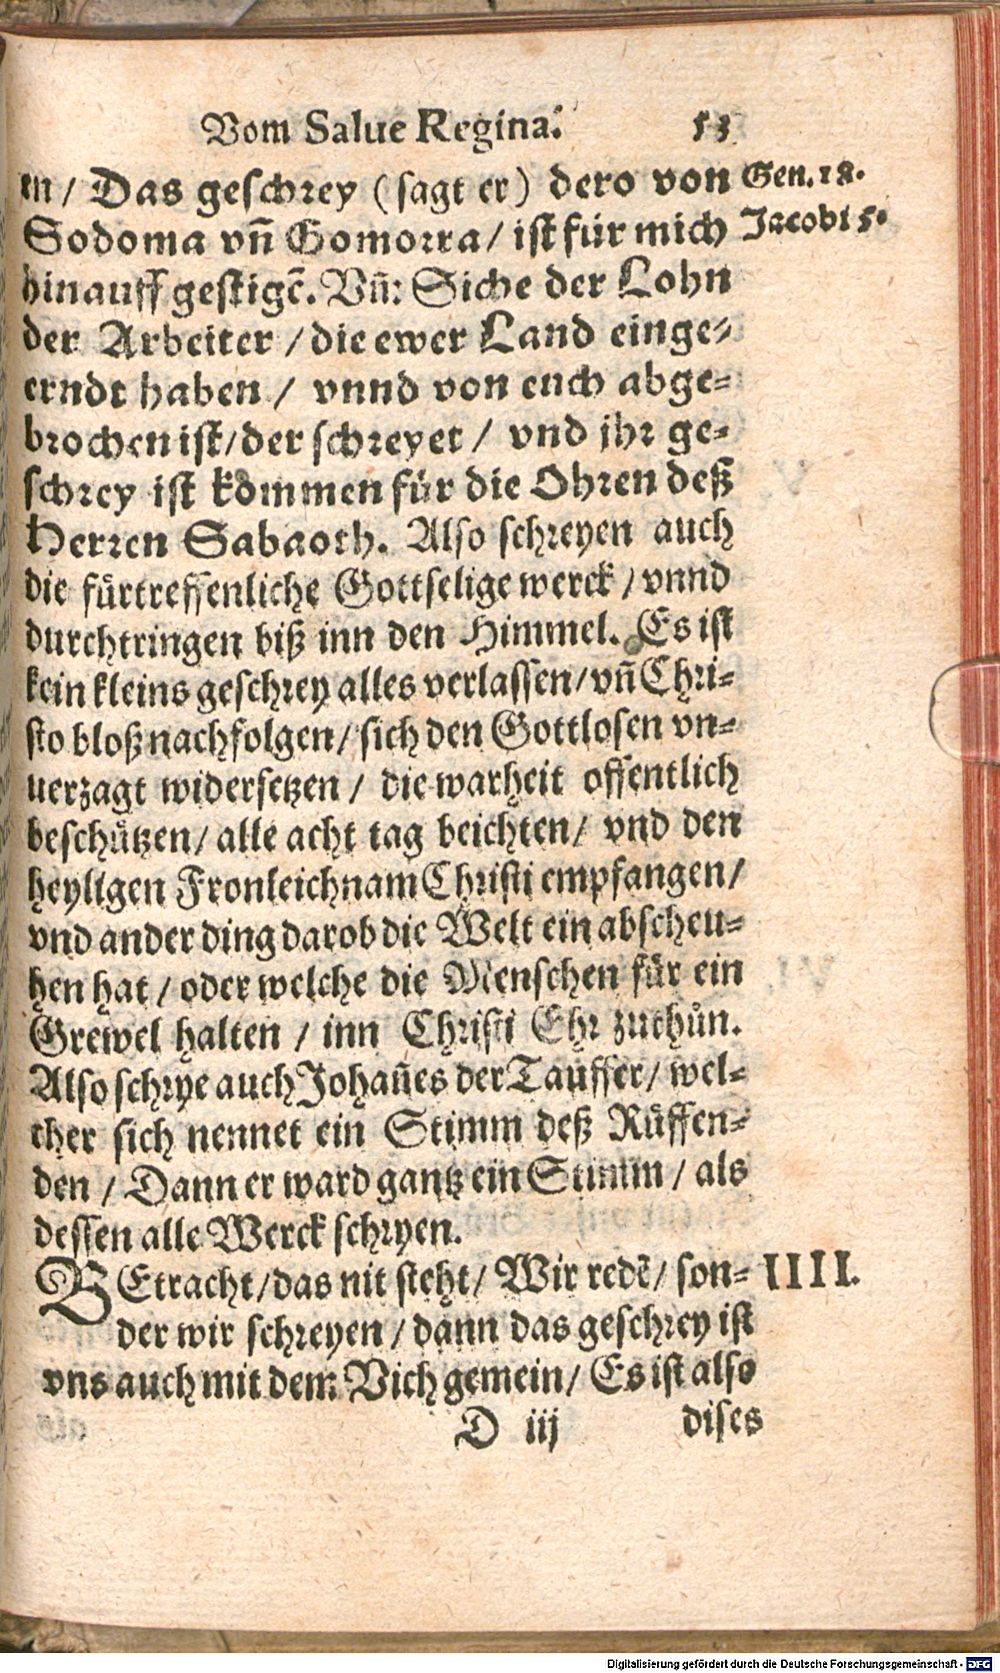 Vom Salue Regina. 53
en / Das geschrey (sagt er) dero von
Gen. 18.
Sodoma vn̄ Gomorra / ist für mich
Jacobi 5.
hinauff gestigē. Vn̄: Siche der Lohn
der Arbeiter / die ewer Land einge-
erndt haben / vnnd von euch abge-
brochen ist / der schreyet / vnd jhr ge-
schrey ist kommen für die Ohren deß
Herren Sabaoth. Also schreyen auch
die fürtreffenliche Gottselige werck / vnnd
durchtringen biß inn den Himmel. Es ist
kein kleins geschrey alles verlassen / vn̄ Chri-
sto bloß nachfolgen / sich den Gottlosen vn-
uerzagt widersetzen / die warheit offentlich
beschützen / alle acht tag beichten / vnd den
heyligen Fronleichnam Christi empfangen /
vnd ander ding darob die Welt ein abscheu-
hen hat / oder welche die Menschen für ein
Grewel halten / inn Christi Ehr zuthůn.
Also schrye auch Johan̄es der Tauffer / wel-
cher sich nennet ein Stimm deß Růffen-
den / Dann er ward gantz ein Stimm / als
dessen alle Werck schryen.
BEtracht / das nit steht / Wir redē / son-
IIII.
der wir schreyen / dann das geschrey ist
vns auch mit dem Vich gemein / Es ist also
D iij dises
Digitalisierung gefördert durch die Deutsche Forschungsgemeinschaft - DFG